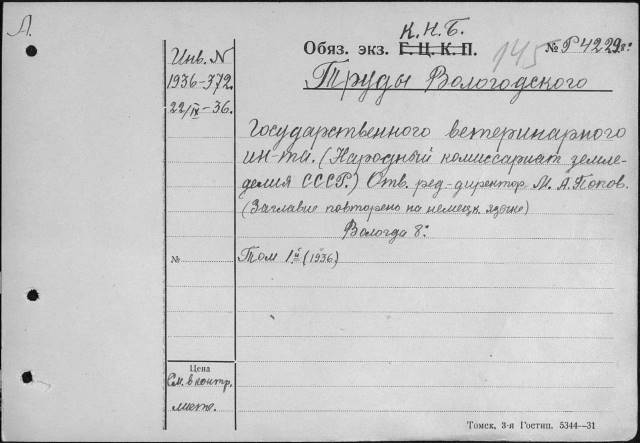 Л.
К.Н.Б.
Обяз. экз. Г.Ц.К.П. 145 № Р4229 8º
Инв. N
1936-372
22/IX-36.
Труды Вологодского
Государственного ветеринарного
ин-та. (Народный комиссариат земле-
делия СССР.) Отв. ред-директор М. А. Попов.
(Заглавие повторено на немецк. языке)
Вологда 8º
№ Том 1й (1936)
Цена
См. в контр.
листе.
Томск, 3-я Гостип. 5344—31